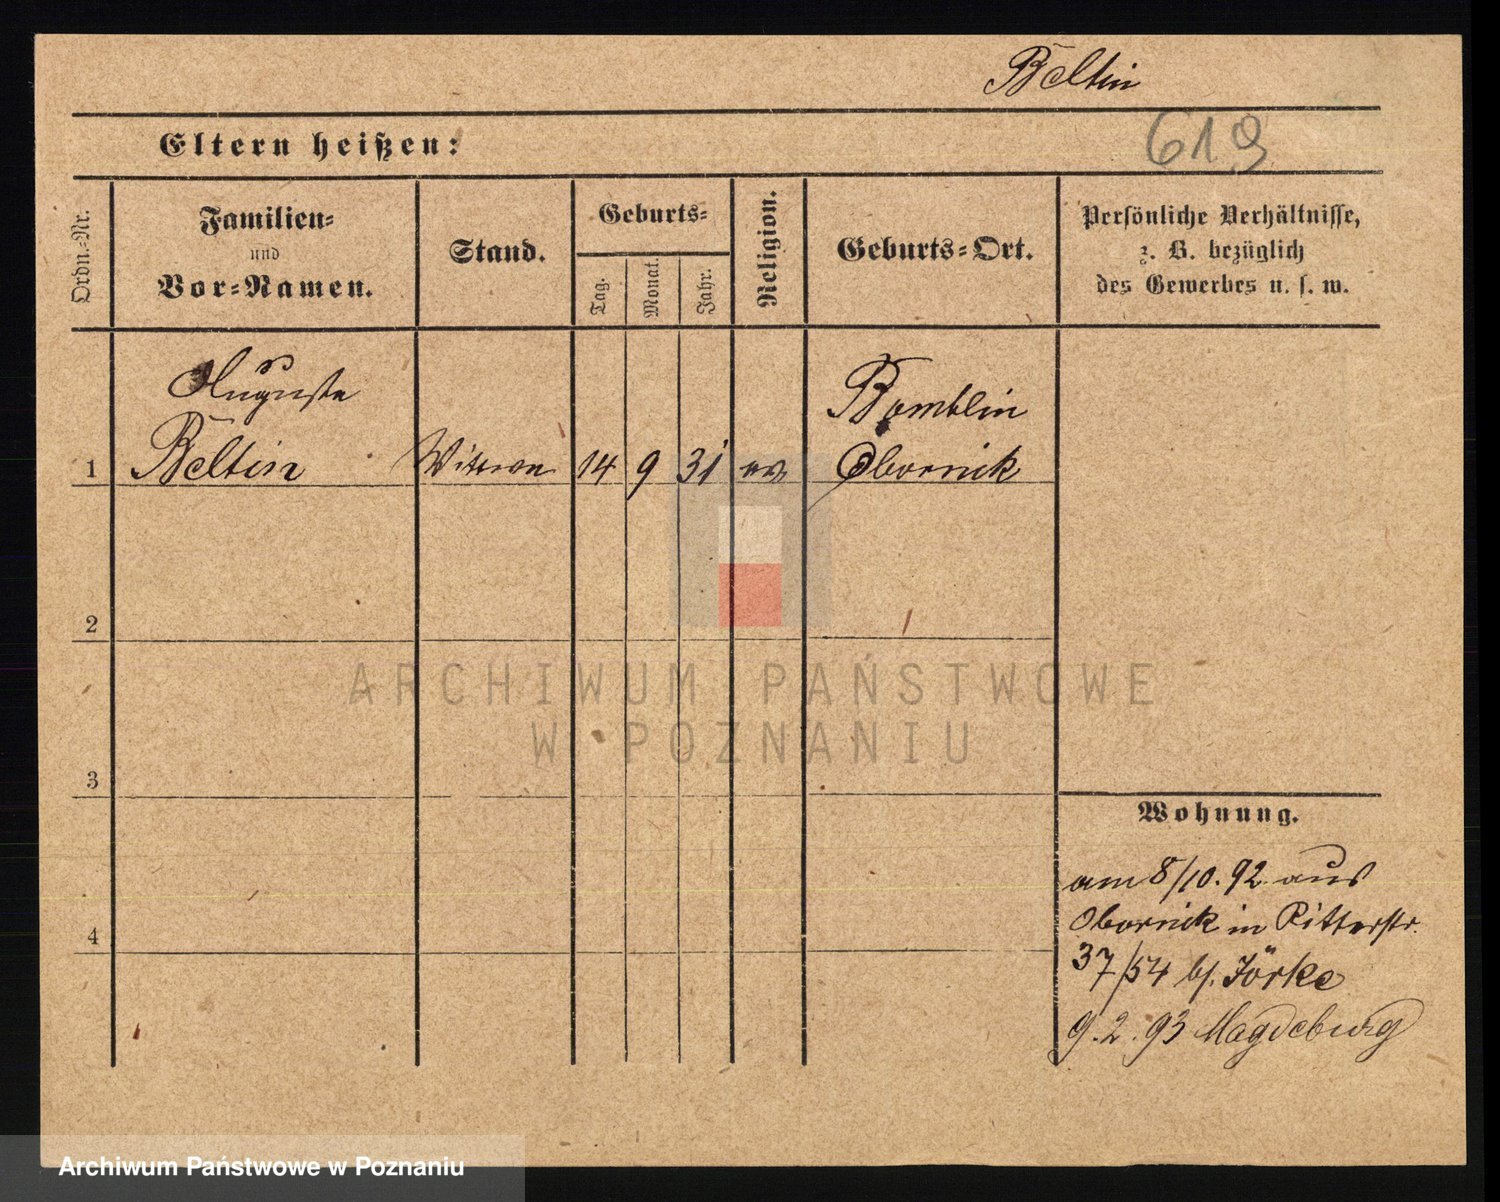 Beltin
Eltern heißen:
619
Ordn.-Nr.
Familien-
und
Vor-Namen.
Stand.
Geburts-
Tag.
Monat.
Jahr.
Religion.
Geburts-Ort.
Persönliche Verhältnisse,
z. B. bezüglich
des Gewerbes u. s. w.
Auguste
Bomblin
1 Beltin Wittwe 14 9 31 ev Obornik
2
ARCHIWUM PAŃSTWOWE
W POZNANIU
3
Wohnung.
am 8/10. 92 aus
Obornick in Ritterstr.
4
37/54 bj. Jörke
9.2.93 Magdeburg
Archiwum Państwowe w Poznaniu